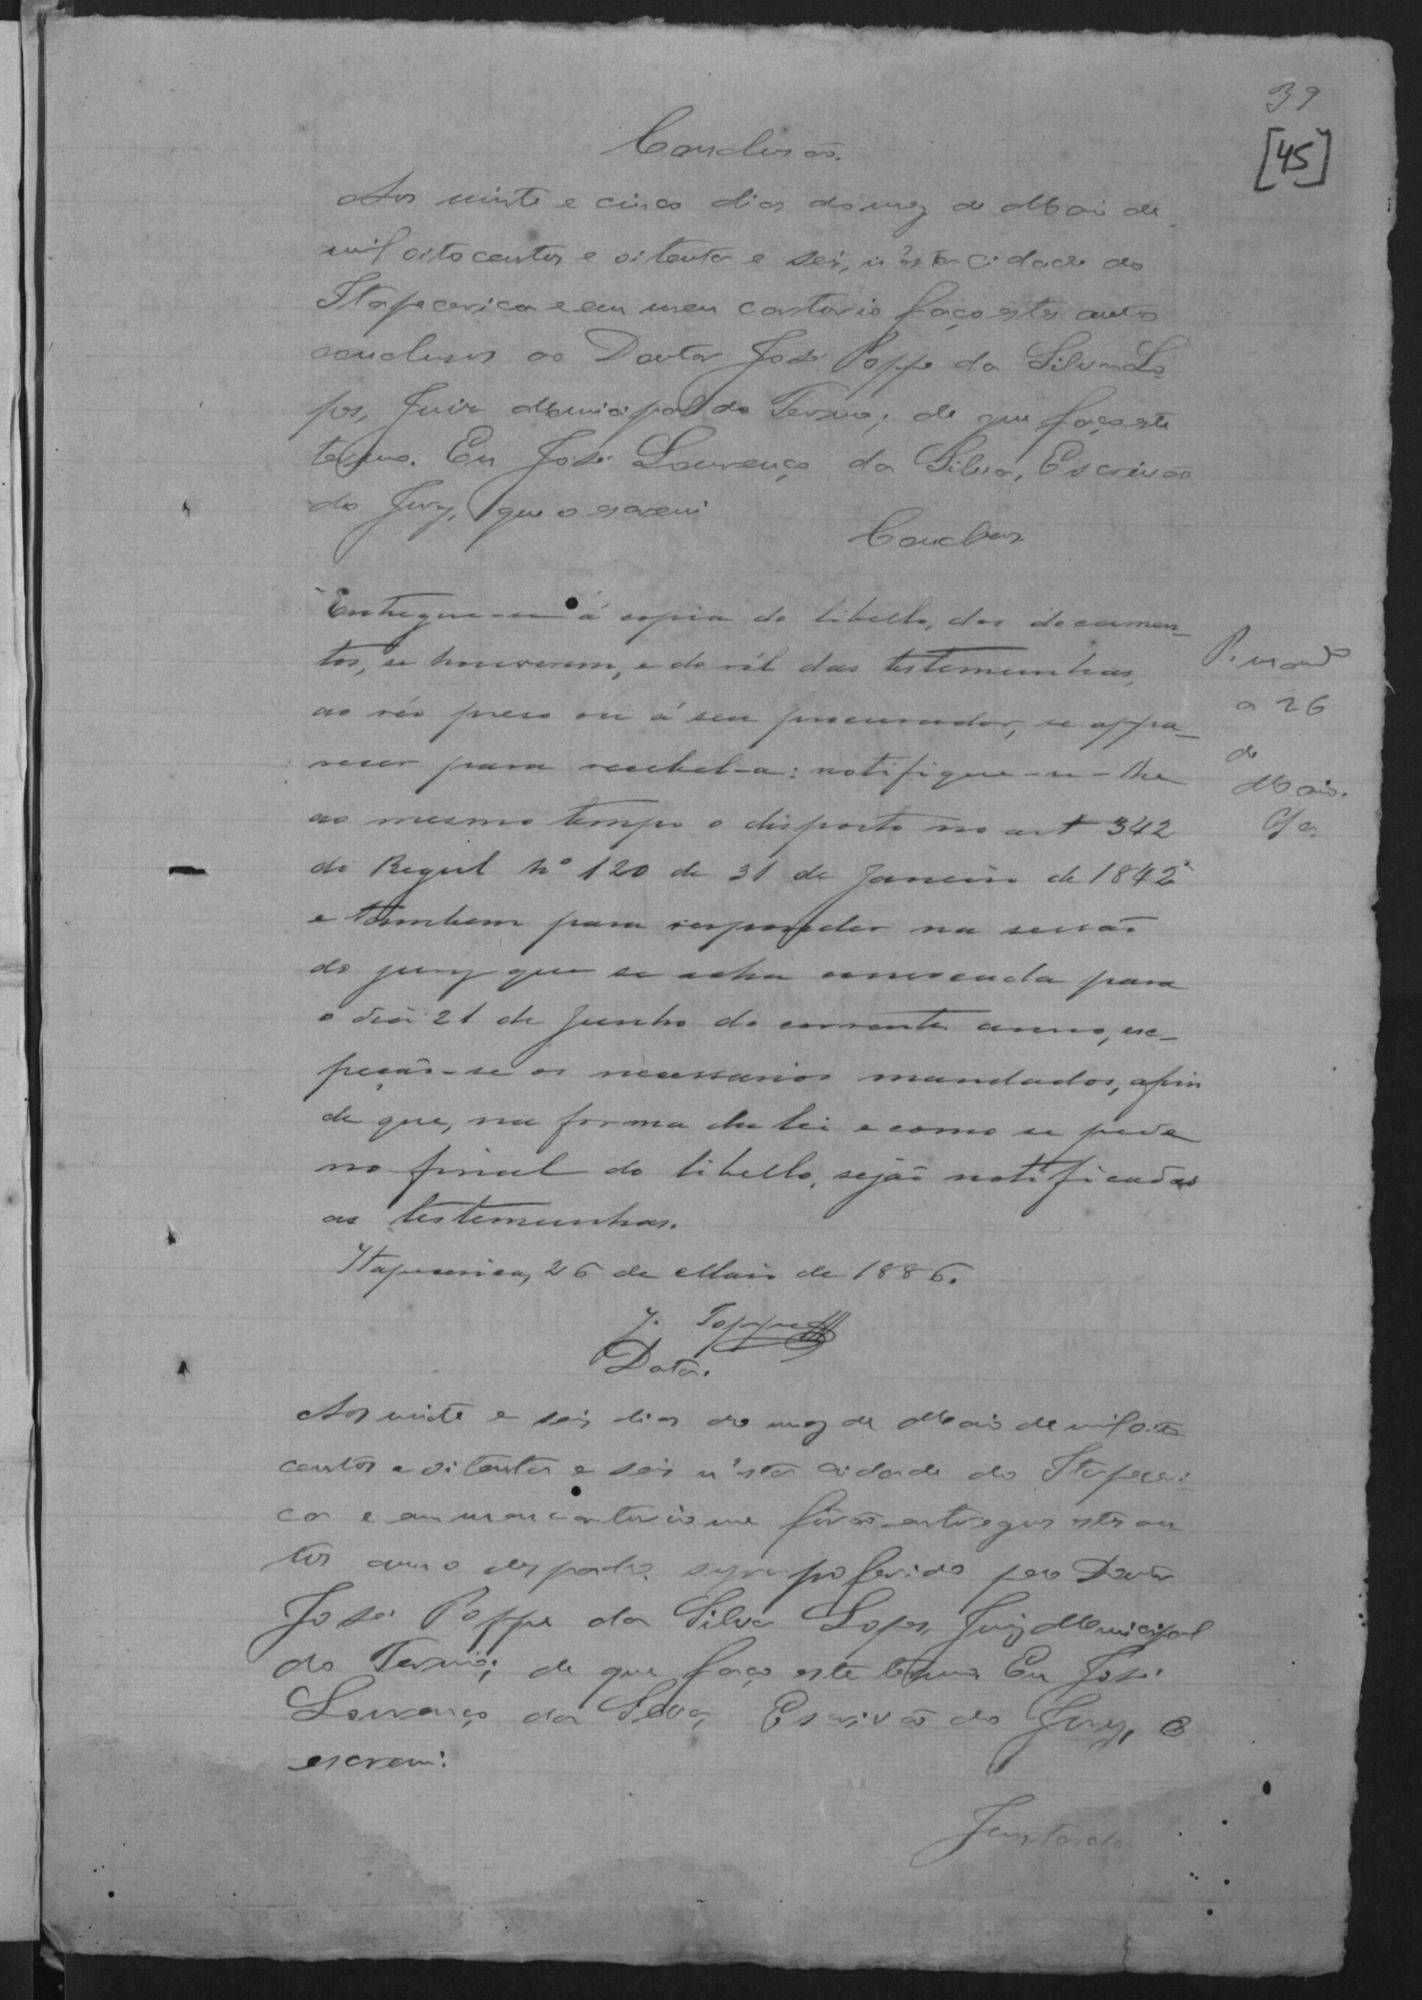 39
[45]
Conclusão.
Aos vinte e cinco dias do mez de Maio de
mil oitocentos e oitenta e seis, n'esta cidade do
Itapecerica e em meu cartorio faço estes autos
conclusos ao Doutor José Poppe da Silva Lo
pes, Juiz Municipal do Termo; de que faço este
termo. Eu José Lourenço da Silva, Escrivão
do Jury, que o escrevi
Conclusos
Entregue-se á copia do libello, dos documen-
tos, se houverem, e do ról das testemunhas,
ao réo preso ou á seu procurador, se appa-
recer para recebel-a: notifique-se-lhe
ao mesmo tempo o disposto no art 342
do Regul nº 120 de 31 de Janeiro de 1842
e tambem para responder na sessão
do jury que se acha convocada para
o dia 21 de Junho do corrente anno, ex-
peção-se os necessarios mandados, afim
de que, na forma da lei e como se pede
no final do libello, sejão notificadas
as testemunhas.
Itapecerica, 26 de Maio de 1886.
J. Poppe
P. mand
a 26
de
Maio.
Data.
Aos vinte e seis dias do mez de Maio de mil oito
centos e oitenta e seis n'esta cidade do Itapeceri
ca e em meu cartorio me forão entregues estes au
tos com o despacho supra proferido pelo Doutor
José Poppe da Silva Lopes, Juiz Municipal
do Termo; de que faço este termo Eu José
Lourenço da Silva, Escrivão do Jury, o
escrevi.
Juntada